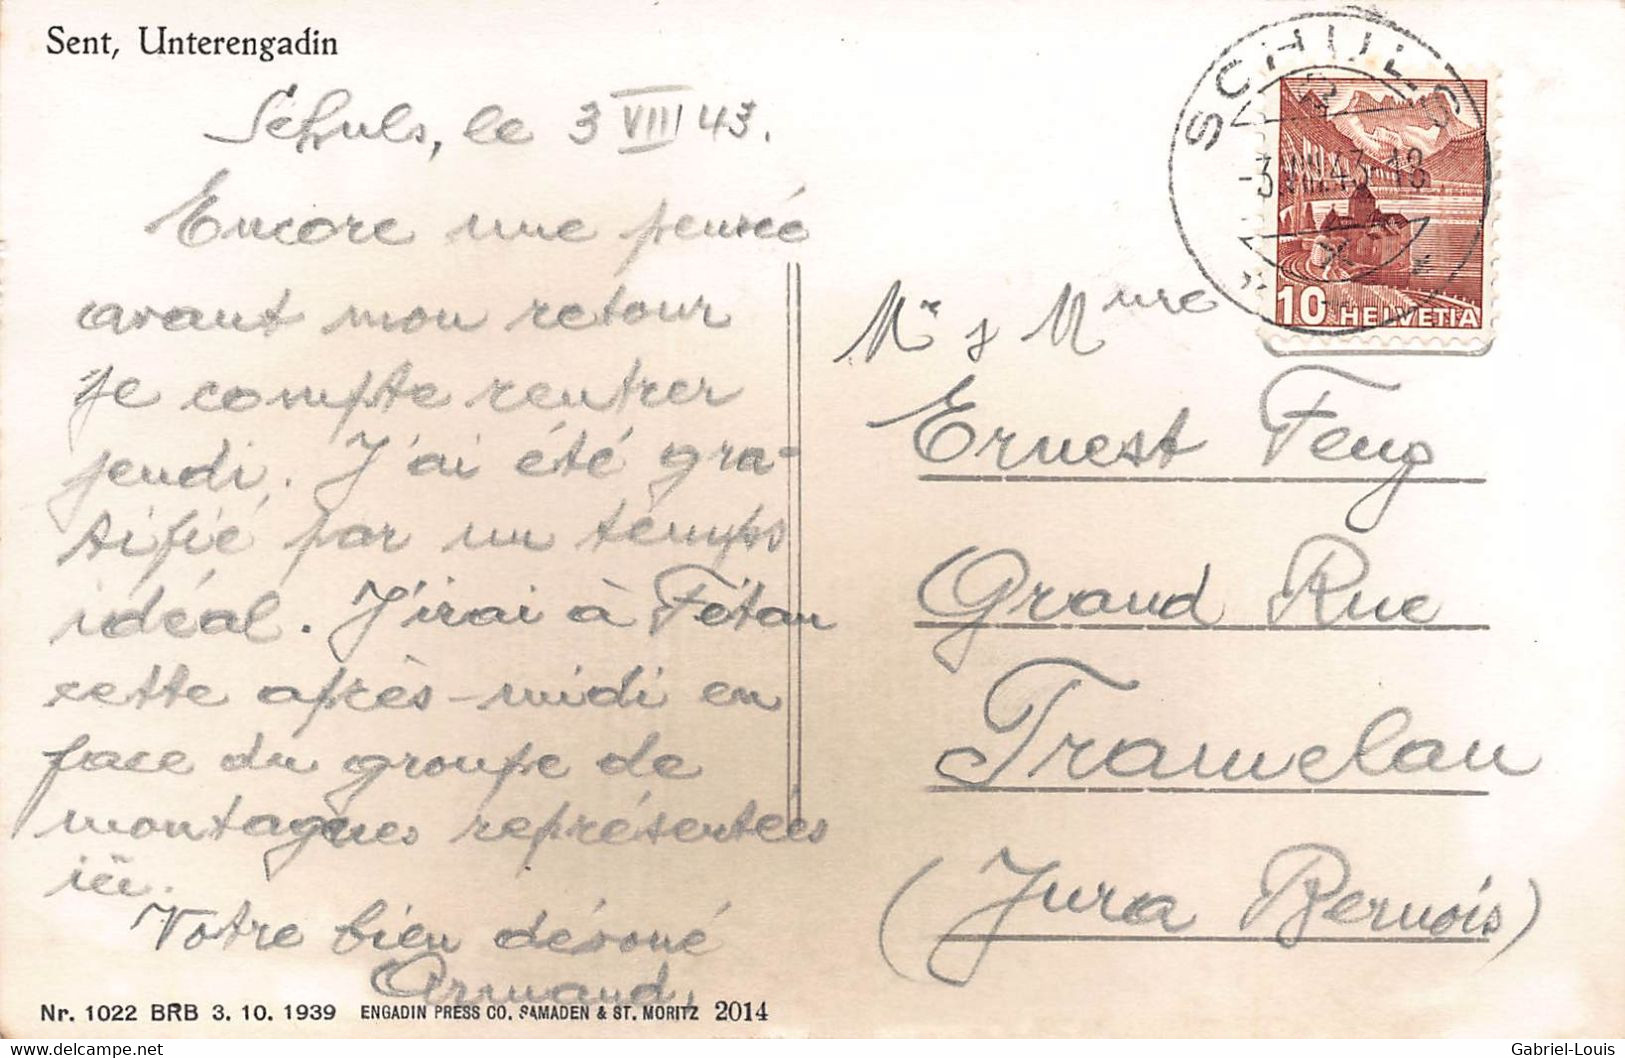 Sent, Unterengadin
Schuls, le 3 VIII 43.
Encore une pensée
avant mon retour
je compte rentrer
jeudi. J'ai été gra-
tifié par un temps
idéal. J'irai à Fétan
cette après-midi en
face du groupe de
montagnes représentées
ici.
Votre bien dévoué
Armand.
Nr. 1022 BRB 3. 10. 1939 ENGADIN PRESS CO. SAMADEN & ST. MORITZ 2014
SCHULS
-3.VIII.43-18
10 HELVETIA
Mr & Mme
Ernest Feug
Grand Rue
Tramelan
(Jura Bernois)
Gabriel-Louis